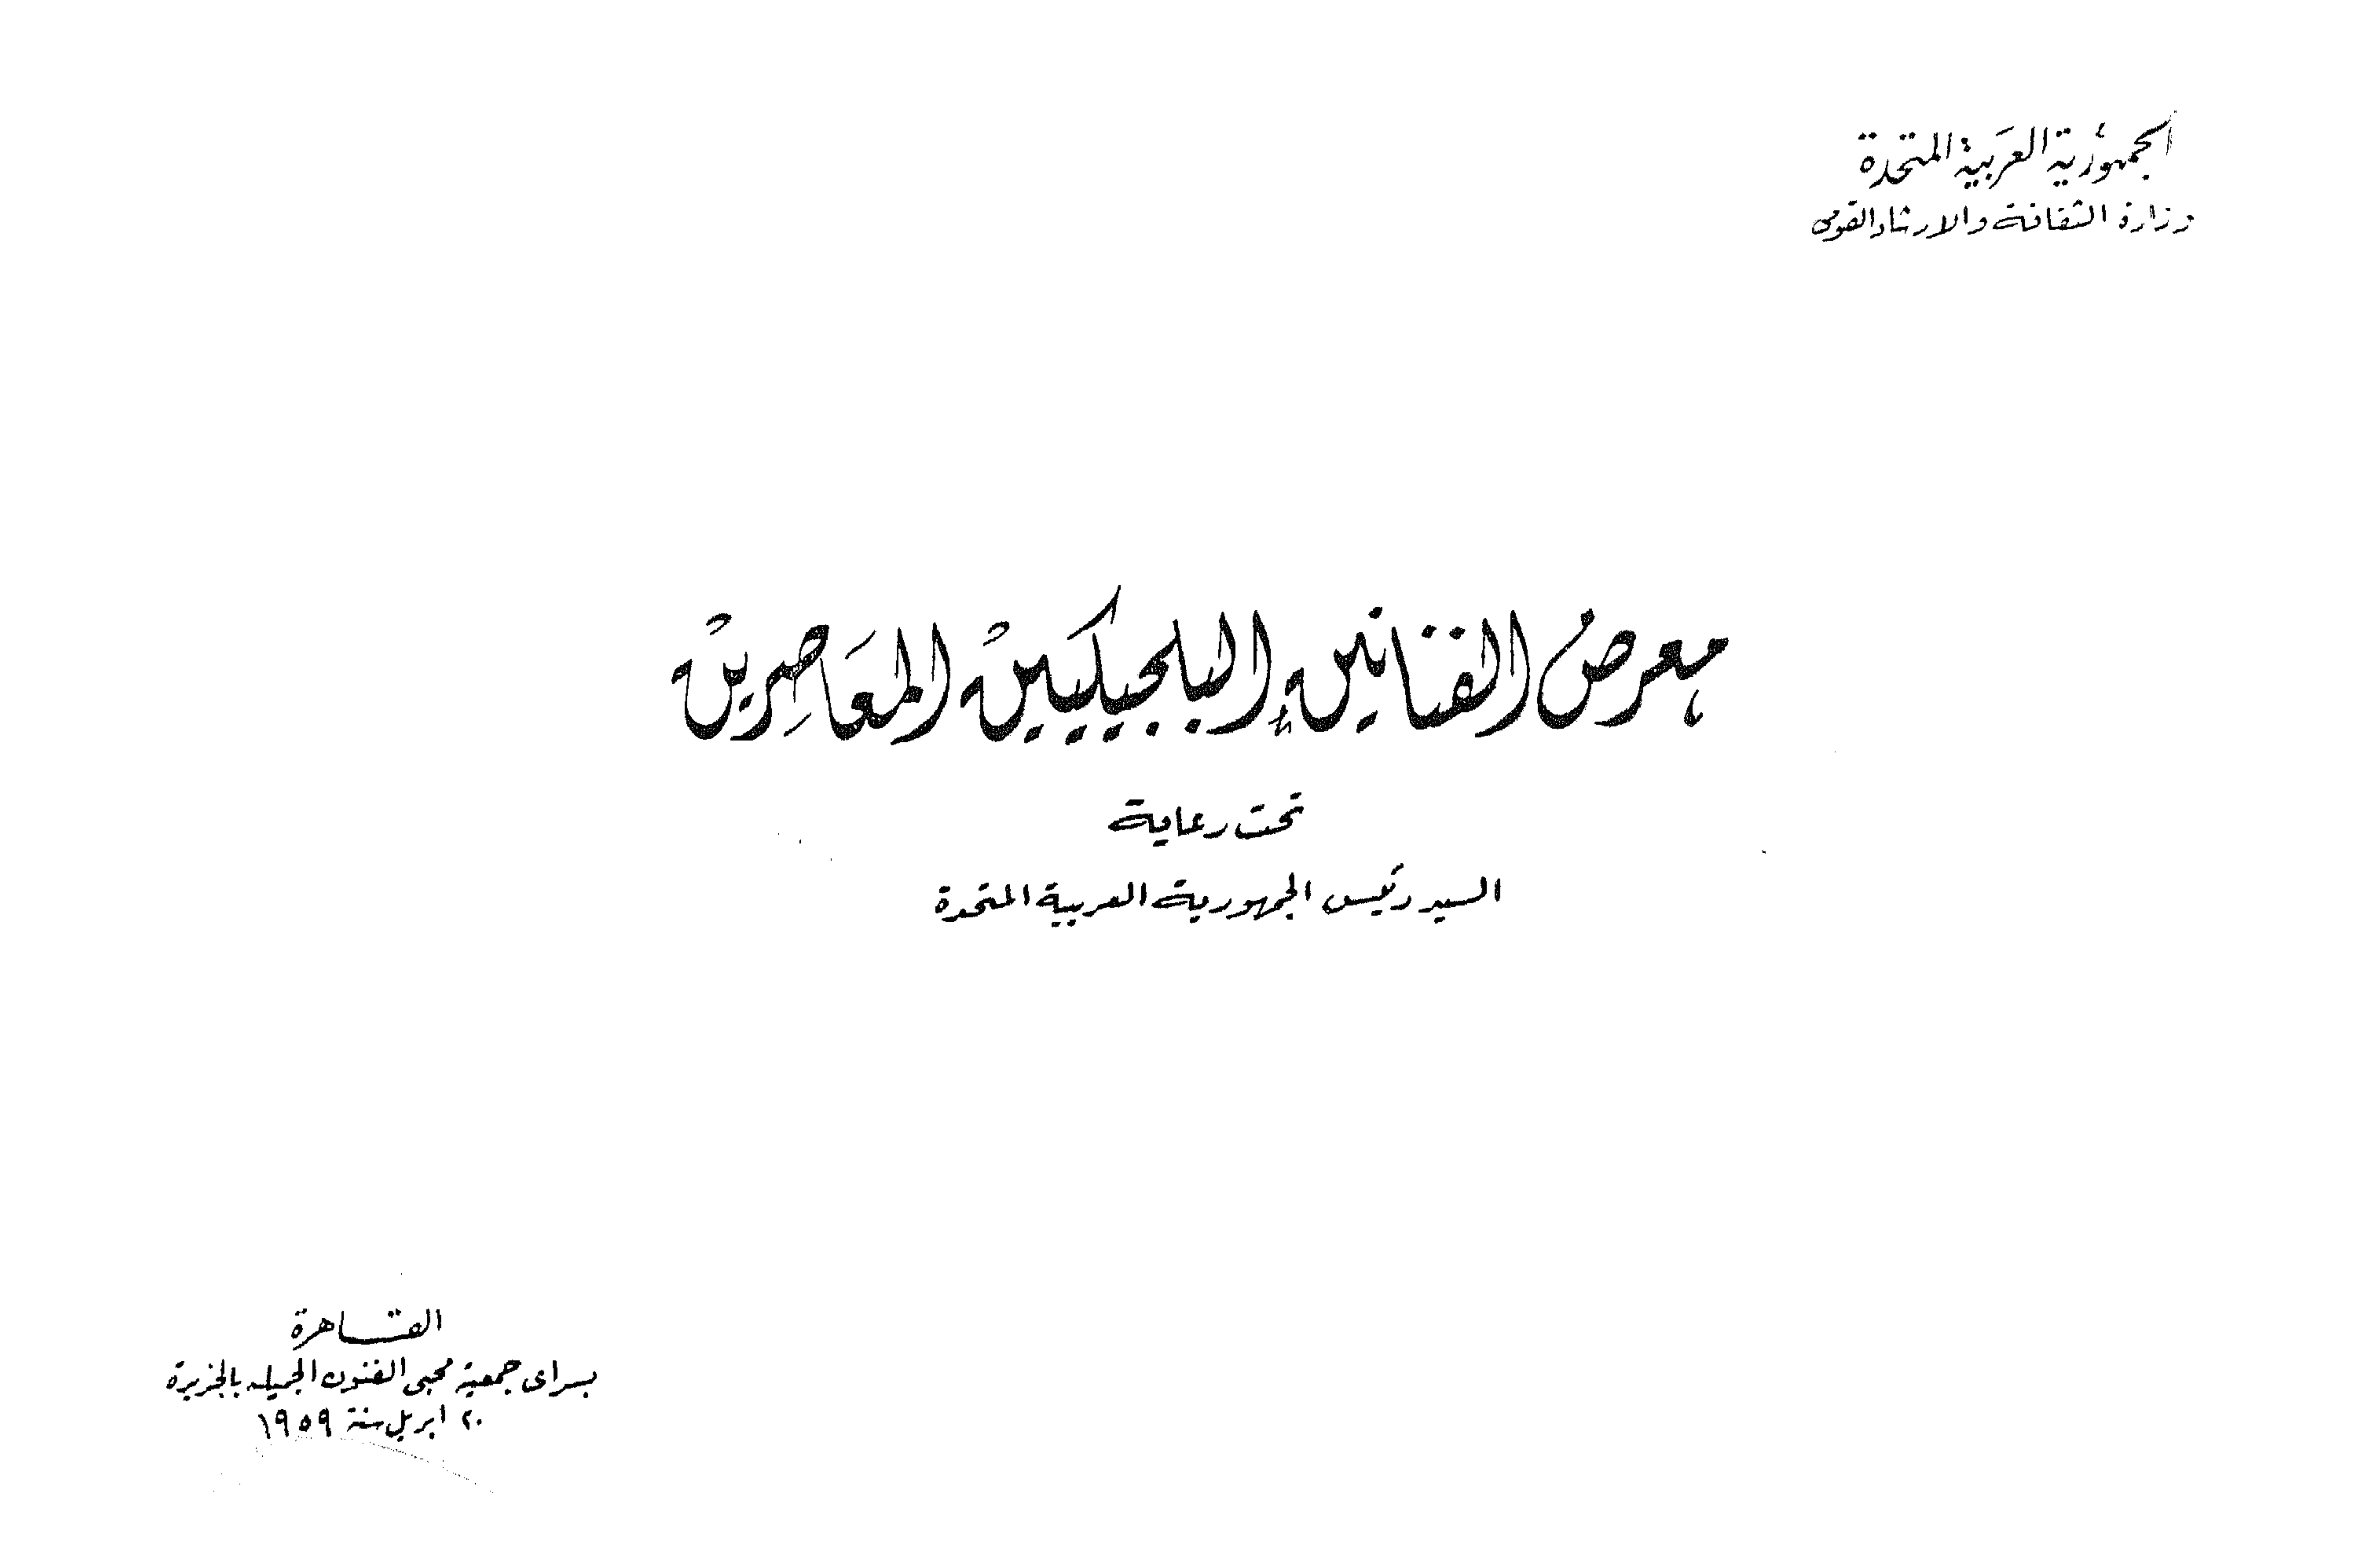 الجمهورية العربية المتحدة
وزارة الثقافة والارشاد القومى
معرض الفنانين البلجيكيين المعاصرين
تحت رعاية
السيد رئيس الجمهورية العربية المتحدة
القاهرة
بسراى جمعية محبى الفنون الجميله بالجزيرة
٢٠ ابريل سنة ١٩٥٩